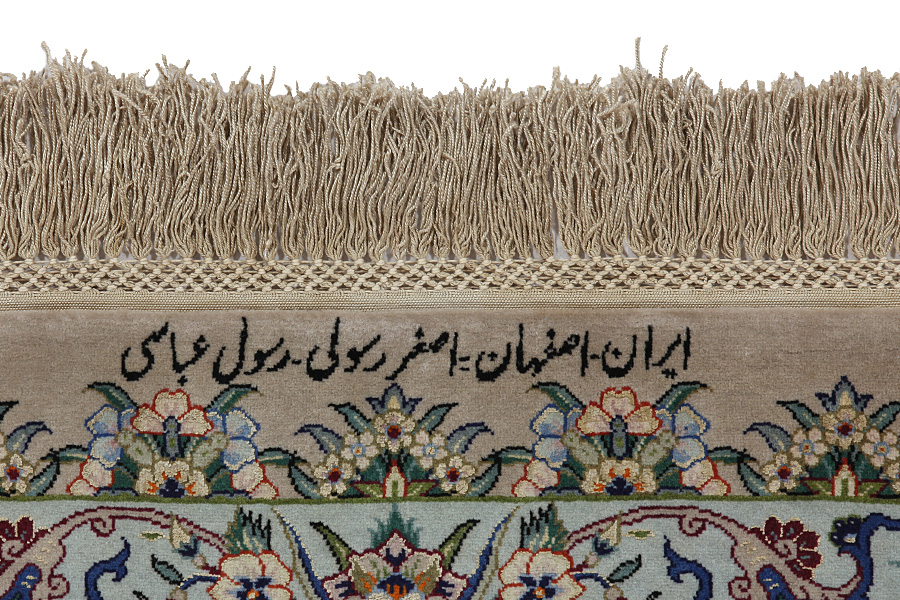 ایران-اصفهان-اصغر رسولی-رسول عباسی